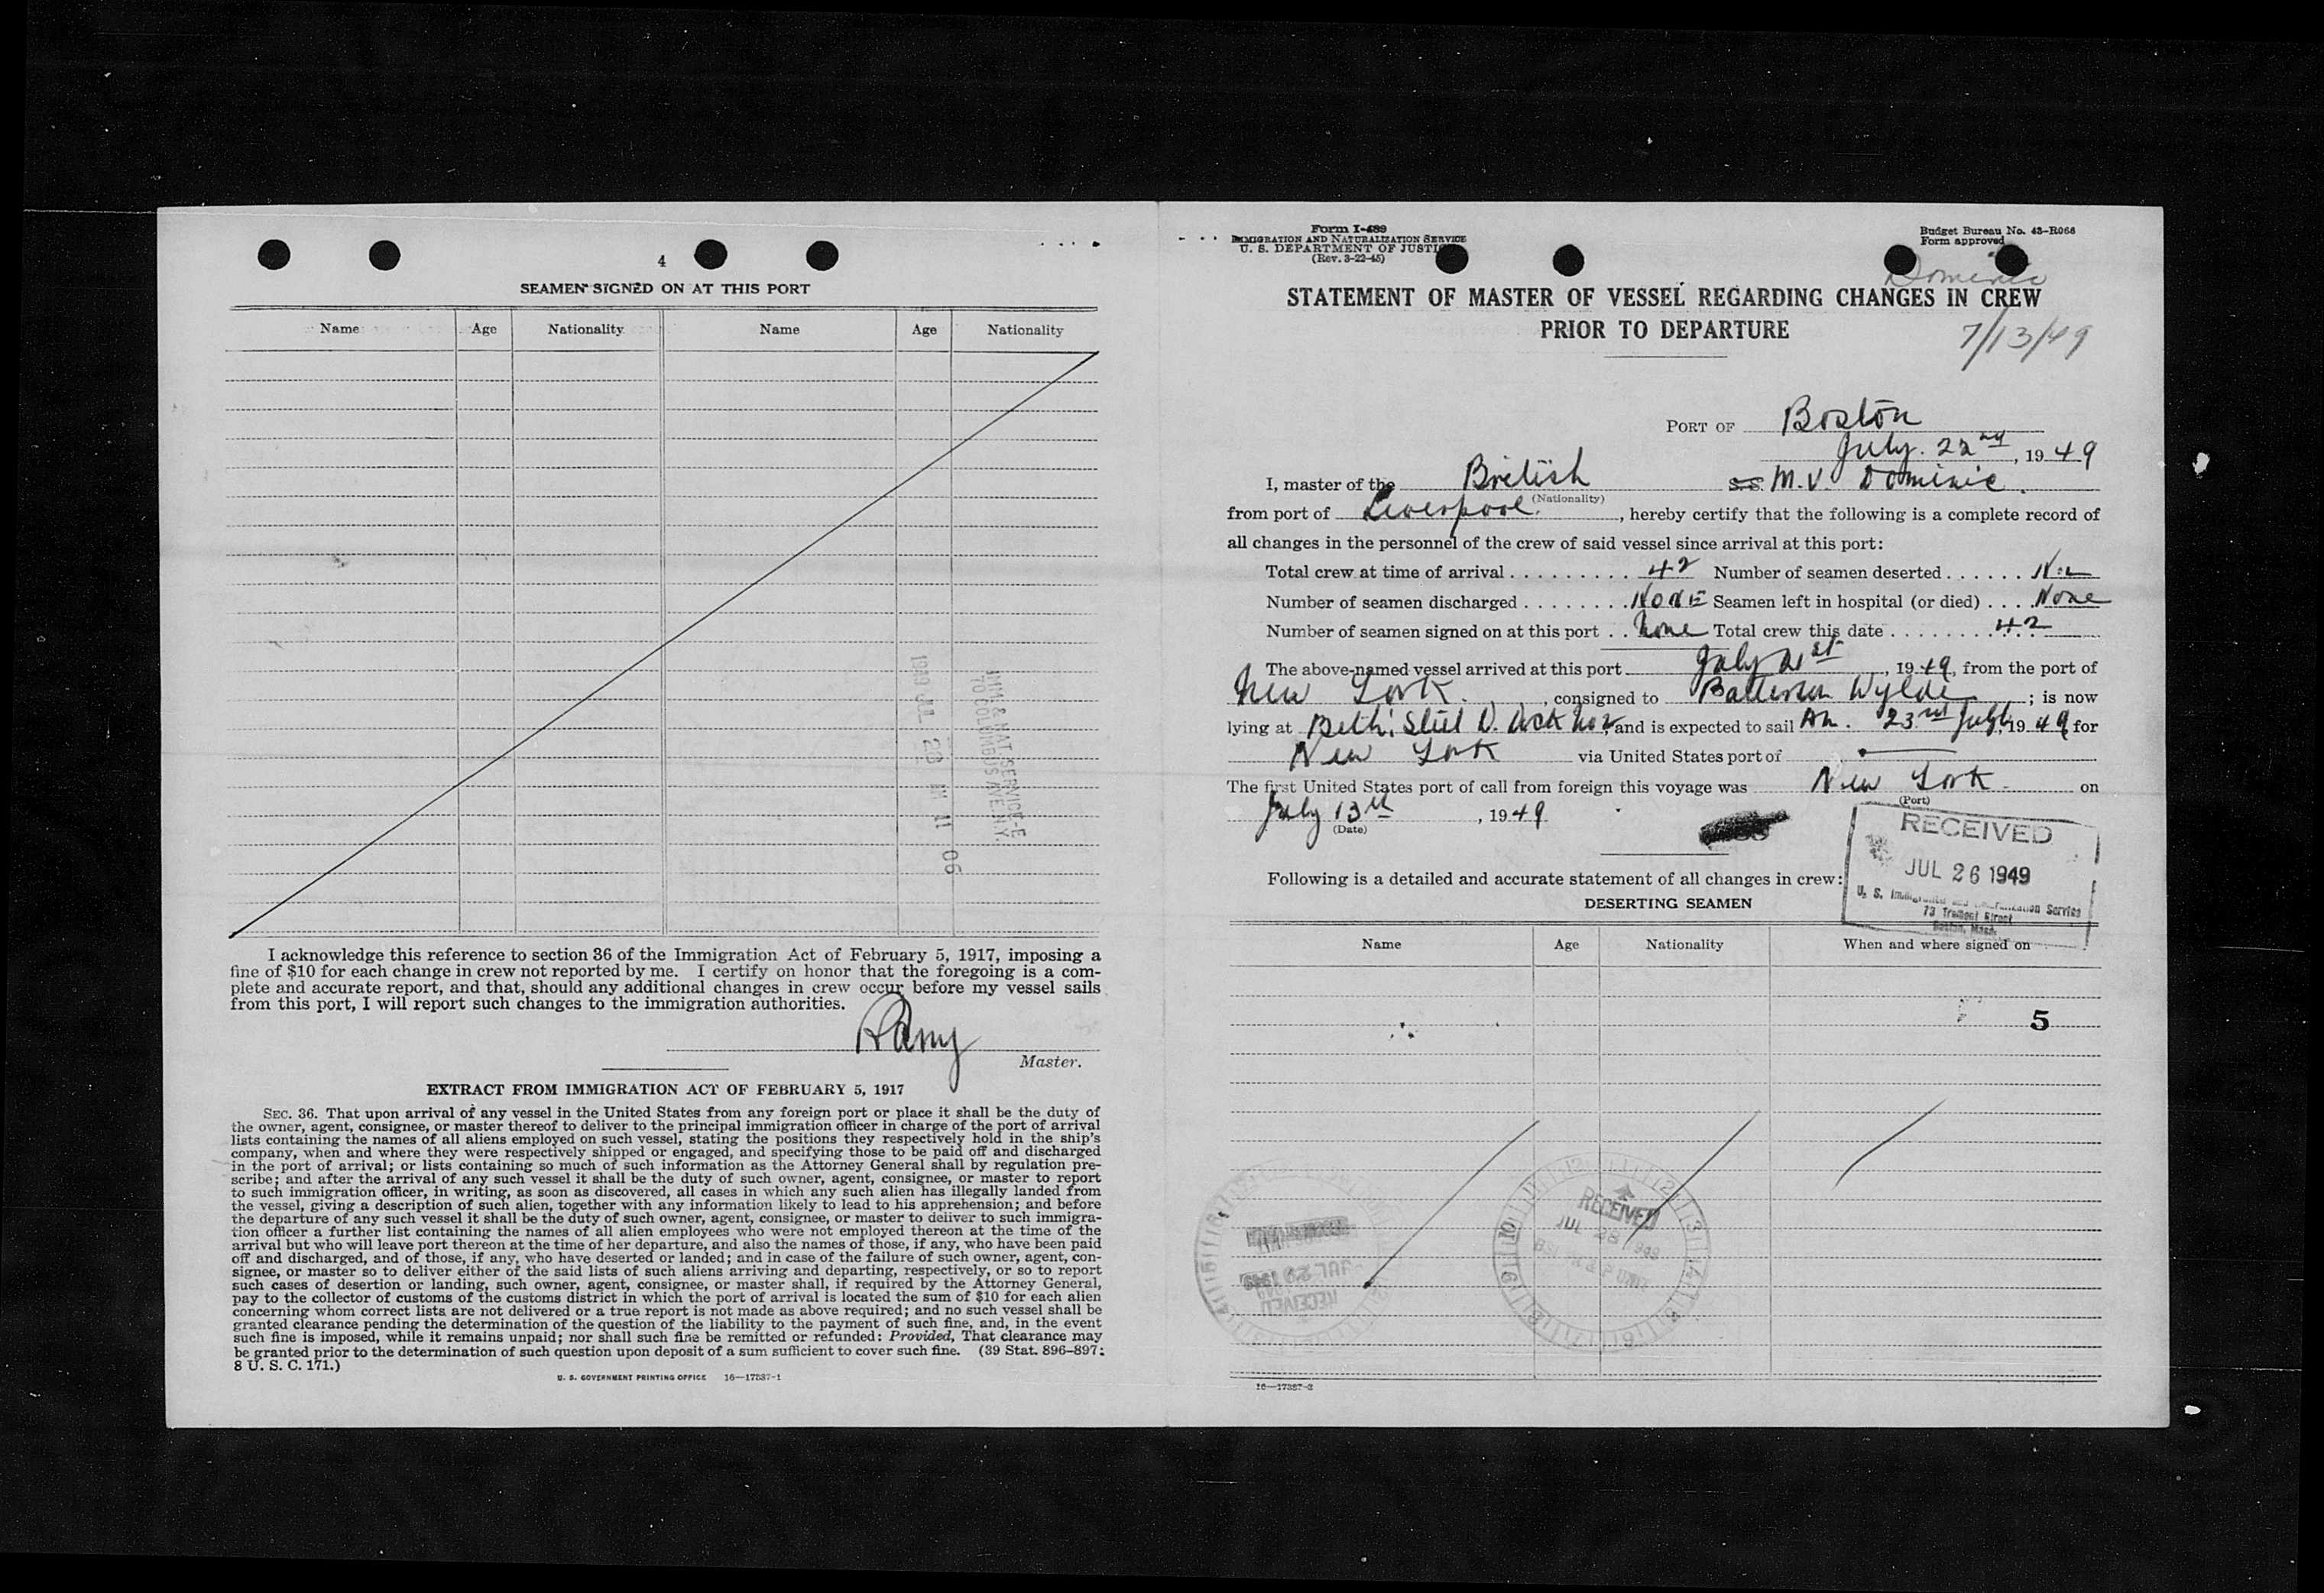 4
SEAMEN SIGNED ON AT THIS PORT
Name Age Nationality Name Age Nationality
IMM & NAT. SERVICE-E
70 COLUMBUS AVE N.Y.
1949 JUL 28 11 06
I acknowledge this reference to section 36 of the Immigration Act of February 5, 1917, imposing a
fine of $10 for each change in crew not reported by me. I certify on honor that the foregoing is a com-
plete and accurate report, and that, should any additional changes in crew occur before my vessel sails
from this port, I will report such changes to the immigration authorities.
Master.
EXTRACT FROM IMMIGRATION ACT OF FEBRUARY 5, 1917
SEC. 36. That upon arrival of any vessel in the United States from any foreign port or place it shall be the duty of
the owner, agent, consignee, or master thereof to deliver to the principal immigration officer in charge of the port of arrival
lists containing the names of all aliens employed on such vessel, stating the positions they respectively hold in the ship's
company, when and where they were respectively shipped or engaged, and specifying those to be paid off and discharged
in the port of arrival; or lists containing so much of such information as the Attorney General shall by regulation pre-
scribe; and after the arrival of any such vessel it shall be the duty of such owner, agent, consignee, or master to report
to such immigration officer, in writing, as soon as discovered, all cases in which any such alien has illegally landed from
the vessel, giving a description of such alien, together with any information likely to lead to his apprehension; and before
the departure of any such vessel it shall be the duty of such owner, agent, consignee, or master to deliver to such immigra-
tion officer a further list containing the names of all alien employees who were not employed thereon at the time of the
arrival but who will leave port thereon at the time of her departure, and also the names of those, if any, who have been paid
off and discharged, and of those, if any, who have deserted or landed; and in case of the failure of such owner, agent, con-
signee, or master so to deliver either of the said lists of such aliens arriving and departing, respectively, or so to report
such cases of desertion or landing, such owner, agent, consignee, or master shall, if required by the Attorney General,
pay to the collector of customs of the customs district in which the port of arrival is located the sum of $10 for each alien
concerning whom correct lists are not delivered or a true report is not made as above required; and no such vessel shall be
granted clearance pending the determination of the question of the liability to the payment of such fine, and, in the event
such fine is imposed, while it remains unpaid; nor shall such fine be remitted or refunded: Provided, That clearance may
be granted prior to the determination of such question upon deposit of a sum sufficient to cover such fine. (39 Stat. 896–897;
8 U. S. C. 171.)
U. S. GOVERNMENT PRINTING OFFICE 16—17387-1
Form I-489
IMMIGRATION AND NATURALIZATION SERVICE
U. S. DEPARTMENT OF JUSTICE
(Rev. 3-22-45)
Budget Bureau No. 43-R066
Form approved
Dominic
STATEMENT OF MASTER OF VESSEL REGARDING CHANGES IN CREW
PRIOR TO DEPARTURE
7/13/49
PORT OF Boston
July. 22nd, 1949
I, master of the British S.S. M.V. Dominic.
(Nationality)
from port of Liverpool., hereby certify that the following is a complete record of
all changes in the personnel of the crew of said vessel since arrival at this port:
Total crew at time of arrival 42 Number of seamen deserted Nil
Number of seamen discharged NONE Seamen left in hospital (or died) None
Number of seamen signed on at this port None Total crew this date 42
The above-named vessel arrived at this port July 21st, 1949, from the port of
New York., consigned to Patterson Wylde; is now
lying at Beth. Steel D. Dock No 2, and is expected to sail Am. 23rd July, 1949 for
New York via United States port of
The first United States port of call from foreign this voyage was New York on
(Port)
July 13th, 1949
(Date)
RECEIVED
JUL 26 1949
U. S. Immigration and Naturalization Service
73 Tremont Street
Boston, Mass.
Following is a detailed and accurate statement of all changes in crew:
DESERTING SEAMEN
Name Age Nationality When and where signed on
5
RECEIVED
JUL 28 1949
JUL 29 1949
RECEIVED
16—17387-2